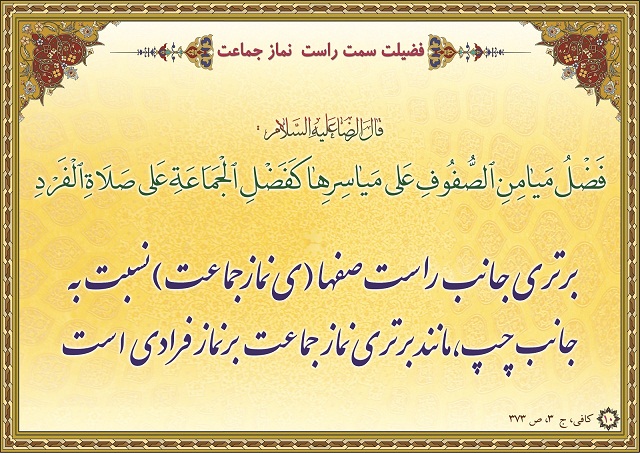 فضیلت سمت راست نماز جماعت
قال الرضا علیه السلام :
فَضْلُ مَیامِنِ ٱلصُّفُوفِ عَلی مَیاسِرِها کَفَضْلِ ٱلْجَمَاعَةِ عَلی صَلَاةِ ٱلْفَرْدِ
برتری جانب راست صفها (ی نماز جماعت) نسبت به
جانب چپ، مانند برتری نماز جماعت بر نماز فرادی است
۱۰ کافی، ج ۳، ص ۳۷۳